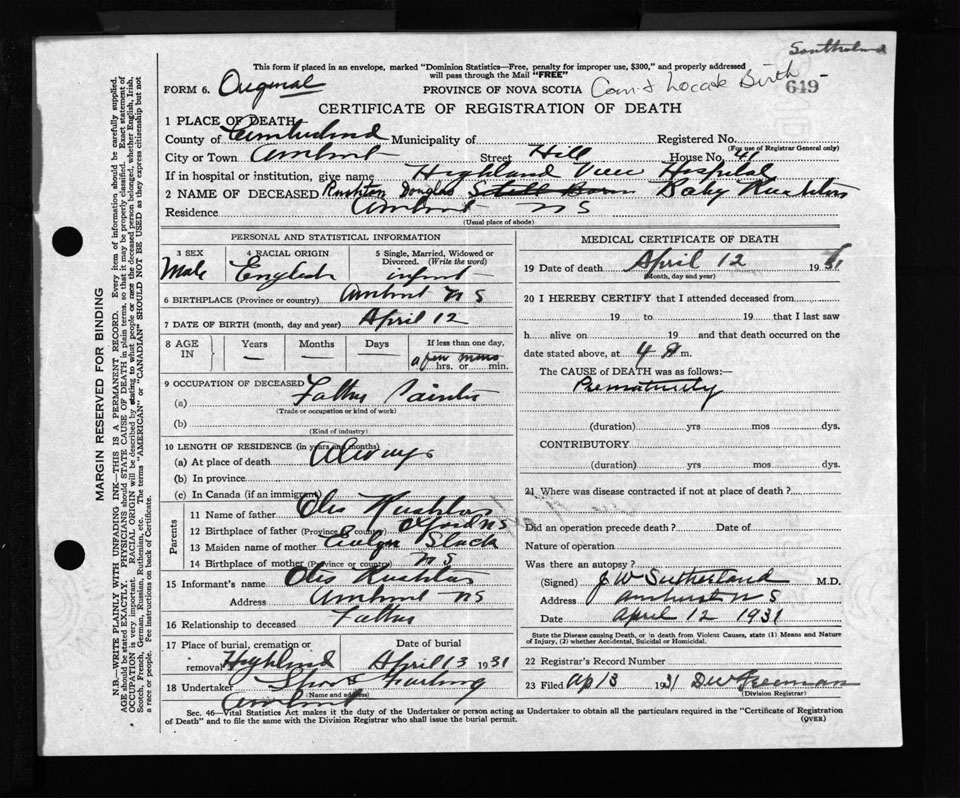 Southerland
This form if placed in an envelope, marked "Dominion Statistics—Free, penalty for improper use, $300," and properly addressed
will pass through the Mail "FREE"
FORM 6. Original PROVINCE OF NOVA SCOTIA Can't Locate Birth 649
CERTIFICATE OF REGISTRATION OF DEATH
1 PLACE OF DEATH
County of Cumberland Municipality of Registered No.
(For use of Registrar General only)
City or Town Amherst Street Hill House No. 41
If in hospital or institution, give name Highland View Hospital
2 NAME OF DECEASED Rushton Douglas Still Born Baby Rushton
Residence Amherst N S
(Usual place of abode)
PERSONAL AND STATISTICAL INFORMATION
3 SEX 4 RACIAL ORIGIN 5 Single, Married, Widowed or
Divorced. (Write the word)
Male English infant
6 BIRTHPLACE (Province or country) Amherst N S
7 DATE OF BIRTH (month, day and year) April 12
8 AGE IN Years Months Days If less than one day.
— — — a few mins
hrs. or min.
9 OCCUPATION OF DECEASED Father Painter
(a)
(Trade or occupation or kind of work)
(b)
(Kind of industry)
10 LENGTH OF RESIDENCE (in years and months)
(a) At place of death Always
(b) In province
(c) In Canada (if an immigrant)
Parents
11 Name of father Otis Rushton
12 Birthplace of father (Province or country) Oxford N S
13 Maiden name of mother Evelyn Slack
14 Birthplace of mother (Province or country) N S
15 Informant's name Otis Rushton
Address Amherst N S
16 Relationship to deceased Father
17 Place of burial, cremation or Date of burial
removal Highland April 13 1931
18 Undertaker
(Name and address)
Amherst
MEDICAL CERTIFICATE OF DEATH
19 Date of death April 12 1931
(Month, day and year)
20 I HEREBY CERTIFY that I attended deceased from
19 to 19 that I last saw
h alive on 19 and that death occurred on the
date stated above, at 4 A m.
The CAUSE of DEATH was as follows:—
Prematurity
(duration) yrs mos dys.
CONTRIBUTORY
(duration) yrs mos dys.
21 Where was disease contracted if not at place of death?
Did an operation precede death? Date of
Nature of operation
Was there an autopsy?
(Signed) J W Sutherland M.D.
Address Amherst N S
Date April 12 1931
State the Disease causing Death, or in death from Violent Causes, state (1) Means and Nature
of Injury, (2) whether Accidental, Suicidal or Homicidal.
22 Registrar's Record Number
23 Filed Ap 13 1931 D W Freeman
(Division Registrar)
Sec. 46—Vital Statistics Act makes it the duty of the Undertaker or person acting as Undertaker to obtain all the particulars required in the "Certificate of Registration
of Death" and to file the same with the Division Registrar who shall issue the burial permit. (OVER)
MARGIN RESERVED FOR BINDING
N.B.—WRITE PLAINLY WITH UNFADING INK—THIS IS A PERMANENT RECORD. Every item of information should be carefully supplied.
AGE should be stated EXACTLY. PHYSICIANS should STATE CAUSE OF DEATH in plain terms, so that it may be properly classified. Exact statement of
OCCUPATION is very important. RACIAL ORIGIN will be described by stating to what people or race the deceased person belonged, whether English, Irish,
Scotch, French, German, Russian, Ruthenian, etc. The terms "AMERICAN" or "CANADIAN" SHOULD NOT BE USED as they express citizenship but not
a race or people. See instructions on back of Certificate.